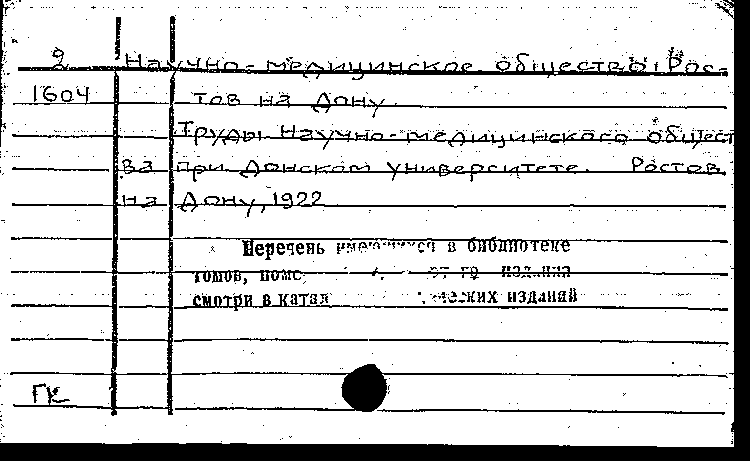 2 Научно-медицинское общество, Рос-
1604 тов на Дону
Труды Научно-медицинского общест
ва при Донском университете. Ростов
на Дону, 1922
Перечень имеющихся в библиотеке
томов, издания
смотри в катал изданий
ГК